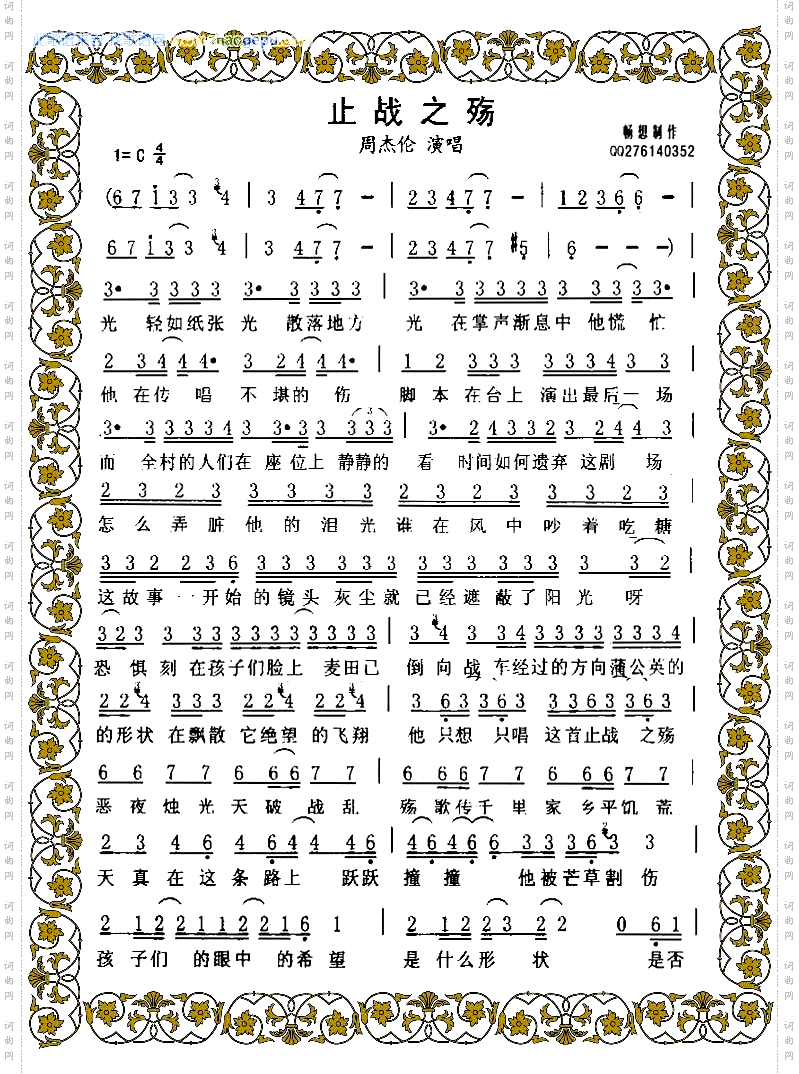 止战之殇
周杰伦 演唱
畅想制作
QQ276140352
1=C 4/4
(6 7 i 3 3 4 | 3 4 7 7 - | 2 3 4 7 7 - | 1 2 3 6 6 - |
6 7 i 3 3 4 | 3 4 7 7 - | 2 3 4 7 7 #5 | 6 - - - )
3· 3 3 3 3 3· 3 3 3 3 | 3· 3 3 3 3 3 3 3 3 3 3·
光 轻如纸张 光 散落地方 光 在掌声渐息中 他慌 忙
2 3 4 4 4· 3 2 4 4 4· | 1 2 3 3 3 3 3 3 4 3 3
他 在传 唱 不 堪的 伤 脚 本 在台上 演出最后一 场
3· 3 3 3 3 4 3· 3 3 3 3 3 | 3· 2 4 3 3 2 3 2 4 4 3
而 全村的人们在 座 位上 静静的 看 时间如何遗弃 这剧 场
2 3 2 3 3 3 2 3 2 3 2 3 3 3 2 3
怎 么 弄 脏 他 的 泪 光 谁 在 风 中 吵 着 吃 糖
3 3 2 2 3 6 3 3 3 3 3 3 3 3 3 3 3 3 3 3 2
这 故 事 一 开始 的 镜头 灰尘 就 已 经 遮 蔽 了 阳 光 呀
3 2 3 3 3 3 3 3 3 3 3 3 3 3 | 3 4 3 3 4 3 3 3 3 3 3 3 4
恐 惧 刻 在孩子们脸上 麦田已 倒 向 战 车经过的方向蒲公英的
2 2 4 2 2 4 2 2 4 2 2 4 | 3 6 3 3 6 3 3 3 6 3 3 6 3
的形状 在飘散 它绝望 的飞翔 他 只想 只唱 这首止战 之殇
6 6 7 7 6 6 6 7 7 | 6 6 7 7 6 6 6 7 7
恶 夜 烛 光 天 破 战 乱 殇 歌传千 里 家 乡平饥 荒
2 3 4 6 4 6 4 4 4 6 | 4 6 4 6 6 3 3 3 6 3 3
天 真 在 这 条 路上 跃跃 撞 撞 他 被芒草割 伤
2 1 2 2 1 1 2 2 1 6 1 | 2 1 2 2 3 2 2 0 6 1 |
孩 子们 的眼中 的希 望 是 什么形 状 是否
词曲网